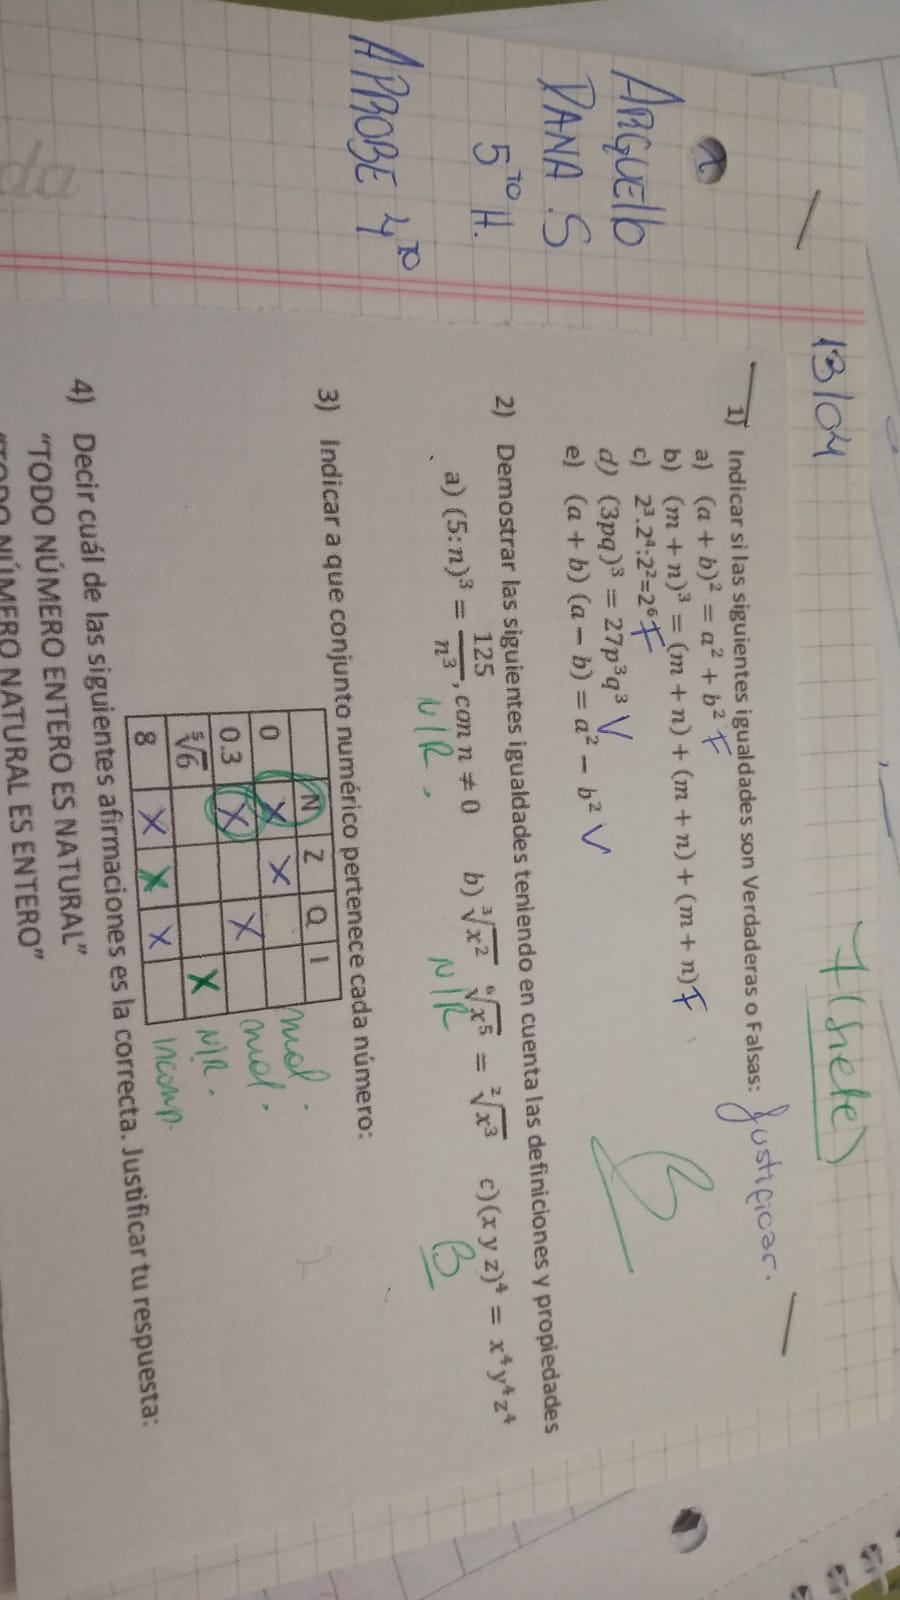 13/04
7 (siete)
1) Indicar si las siguientes igualdades son Verdaderas o Falsas: Justificar.
a) (a + b)² = a² + b² F
b) (m + n)³ = (m + n) + (m + n) + (m + n) F
c) 2³.2⁴:2²=2⁶ F
d) (3pq)³ = 27p³q³ V
e) (a + b) (a − b) = a² − b² V
B
ARGUELLO
DANA .S
5TO H.
APROBE 4TO
2) Demostrar las siguientes igualdades teniendo en cuenta las definiciones y propiedades
a) (5:n)³ = 125/n³, con n ≠ 0 b) ∛x² ⁶√x⁵ = ²√x³ c)(x y z)⁴ = x⁴y⁴z⁴
N/R. N/R B
3) Indicar a que conjunto numérico pertenece cada número:
N Z Q I
0 X X mal.
0.3 X X mal.
⁵√6 X N/R.
8 X X X incomp.
4) Decir cuál de las siguientes afirmaciones es la correcta. Justificar tu respuesta:
“TODO NÚMERO ENTERO ES NATURAL”
“TODO NÚMERO NATURAL ES ENTERO”